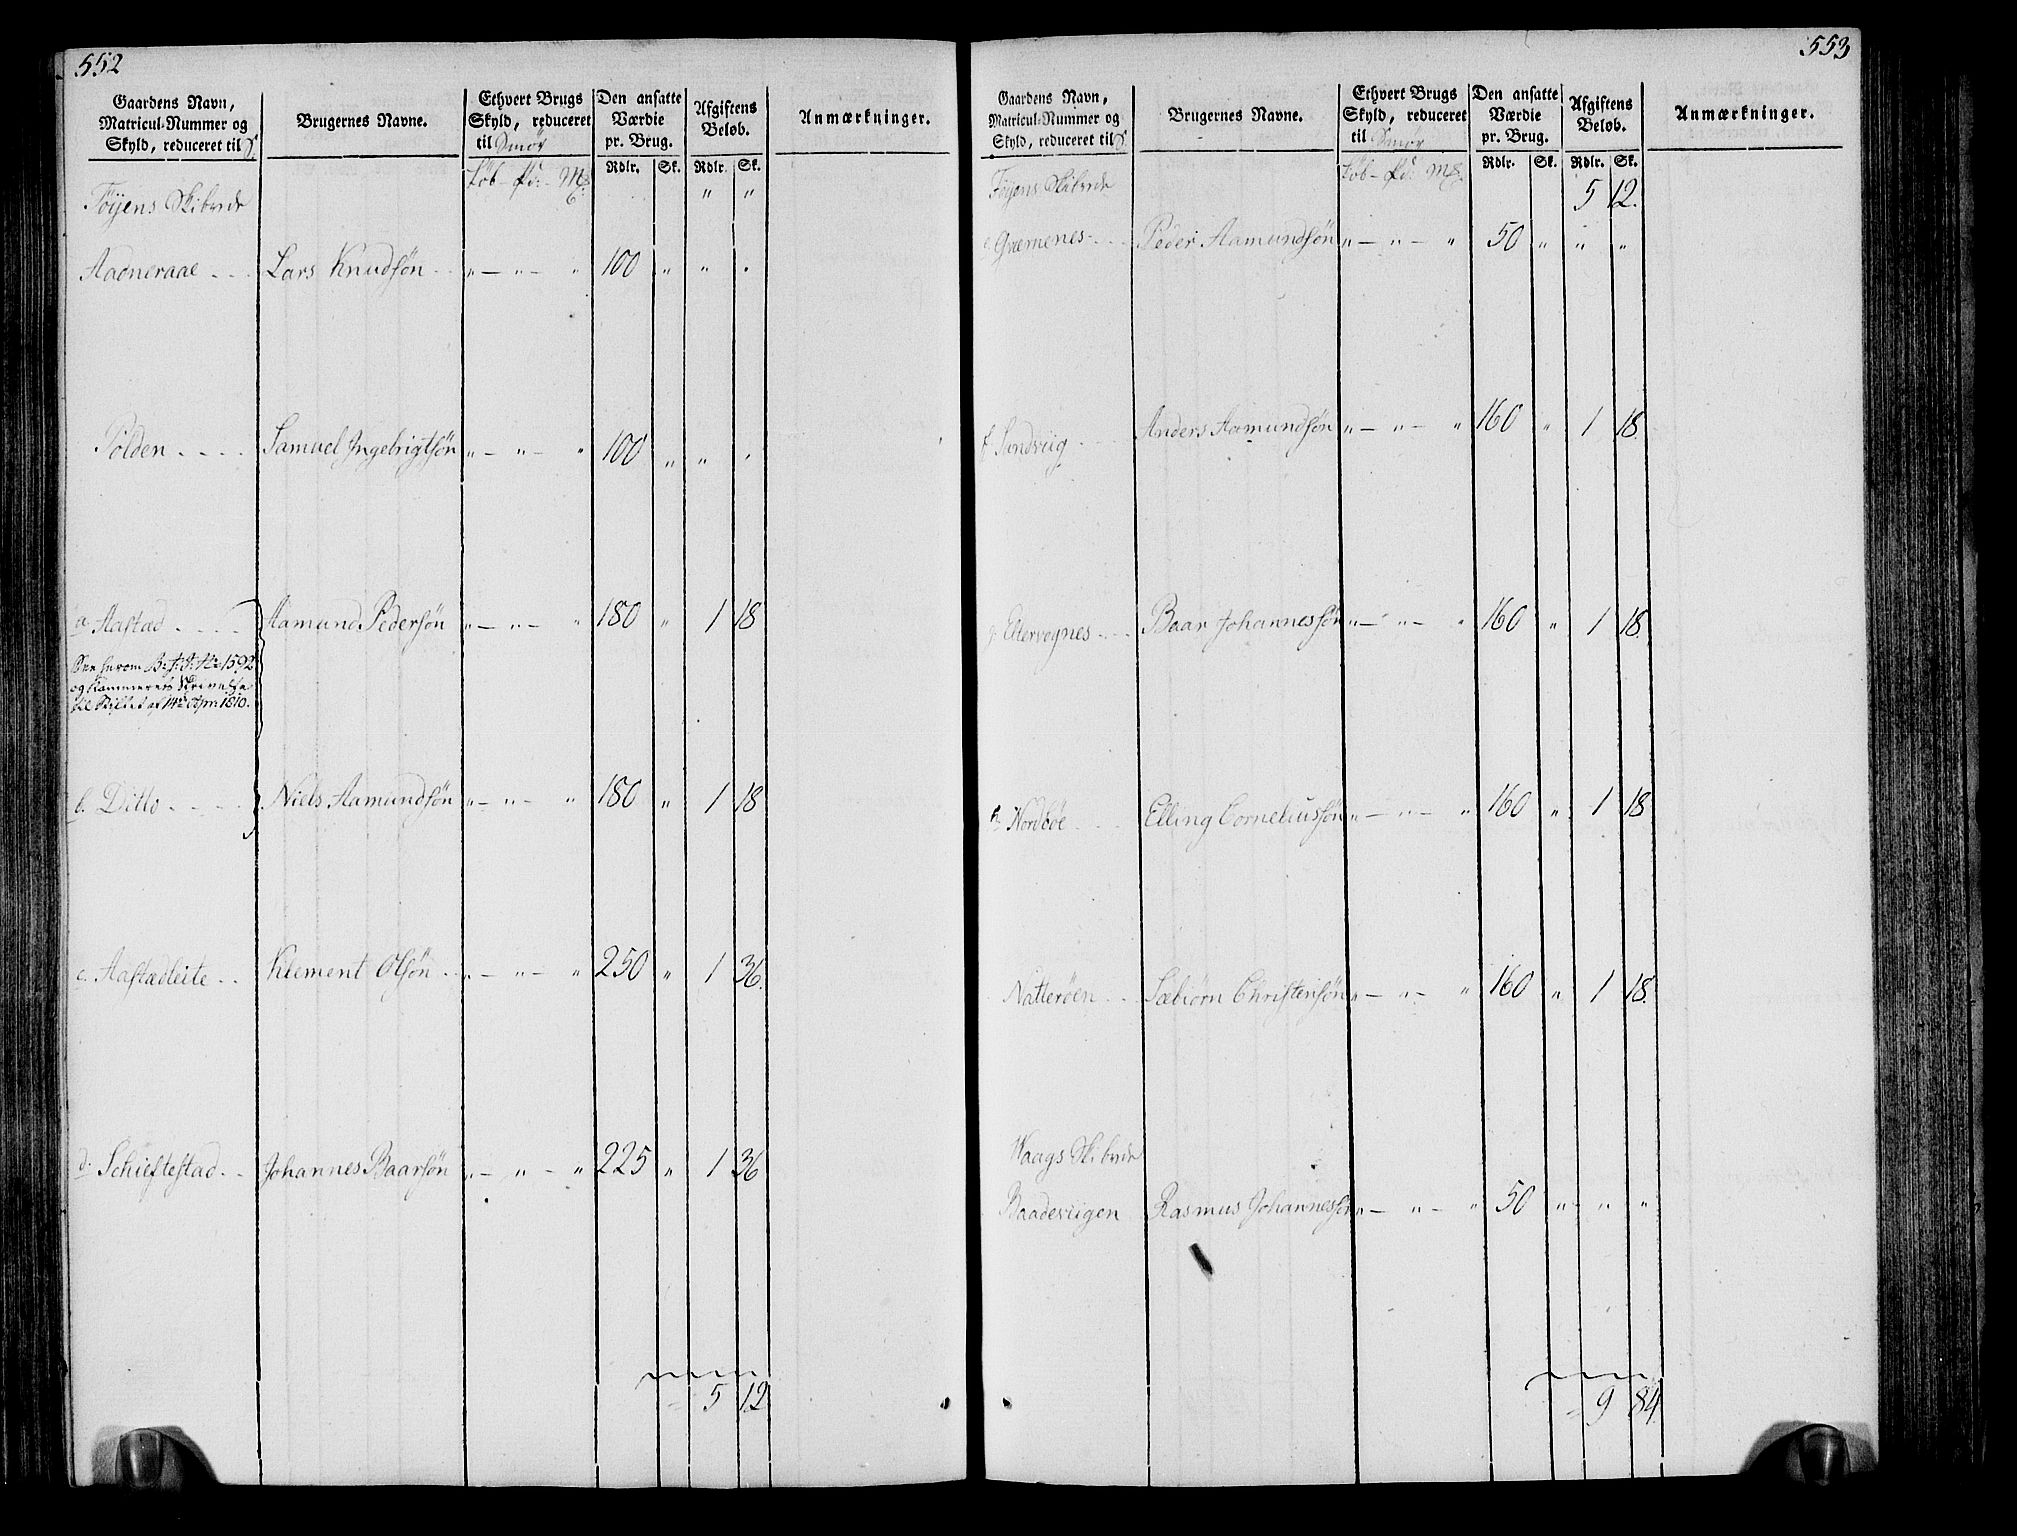 552
Gaardens Navn,
Matricul-Nummer og
Skyld, reduceret til
Brugernes Navne.
Ethvert Brugs
Skyld, reduceret
til Smör
Den ansatte
Værdie
pr. Brug.
Afgiftens
Beløb.
Anmærkninger.
Rdlr. Sk. Rdlr. Sk.
Föyens Skibrede
" "
Aadneraae - - - Lars Knudsön - - " — " — " 100 " " "
Pölden - - - - Samuel Ingebrigtsön " — " — " 100 " " "
a Aastad - - - - Aamund Pedersön " — " — " 180 " 1 18
1592
af 14de 1810.
b. Ditto - - - - Niels Aamundsön " — " — " 180 " 1 18
c. Aastadleite - - Klement Olsön - - " — " — " 250 " 1 36.
d. Schieftestad - - Johannes Baarsön " — " — " 225 " 1 36
5 12
553
Gaardens Navn,
Matricul-Nummer og
Skyld, reduceret til
Brugernes Navne.
Ethvert Brugs
Skyld, reduceret
til Smör
Den ansatte
Værdie
pr. Brug.
Afgiftens
Beløb.
Anmærkninger.
Rdlr. Sk. Rdlr. Sk.
Föyens Skibrede
5 12.
e Græmenes - - - Peder Aamundsön " — " — " 50 " " "
f Sandviig - - - Anders Aamundsön " — " — " 160 " 1 18.
g. Eltervognes - - - Baar Johannessön " — " — " 160 " 1 18.
h Nordböe - - - Elling Corneliussön " — " — " 160 " 1 18
Natteröen - - - Sæbiörn Christensön " — " — " 160 " 1 18.
Waags Skibrede
Baadeviigen Rasmus Johannessön " — " — " 50 " " "
9 84